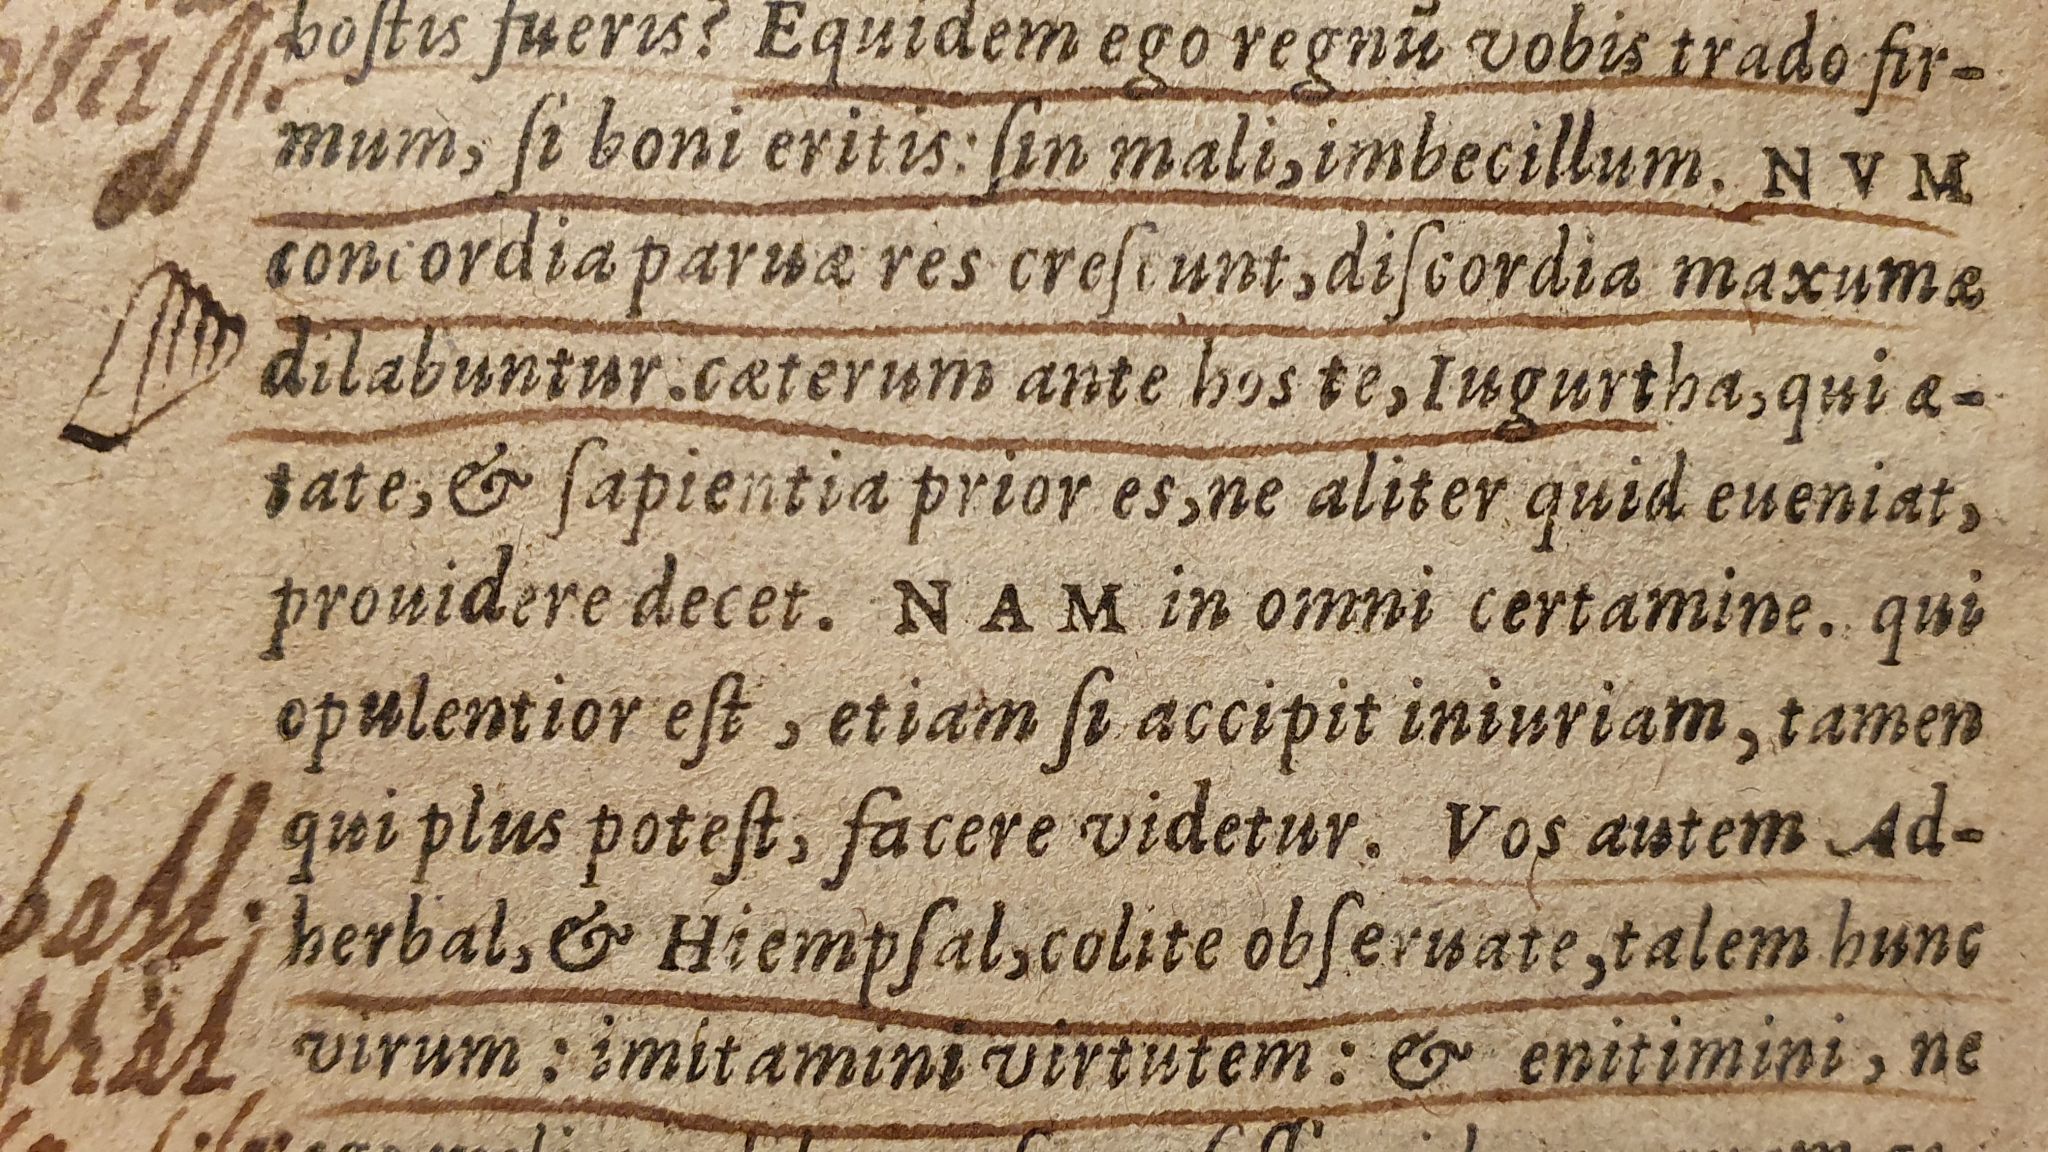 hoſtis fueris? Equidem ego regnū vobis trado fir-
mum, ſi boni eritis: ſin mali, imbecillum. NVM
concordia paruæ res creſcunt, diſcordia maxumæ
dilabuntur. cæterum ante hos te, Iugurtha, qui æ-
tate, & ſapientia prior es, ne aliter quid eueniat,
prouidere decet. NAM in omni certamine. qui
opulentior eſt, etiam ſi accipit iniuriam, tamen
qui plus poteſt, facere videtur. Vos autem Ad-
herbal, & Hiempſal, colite obſeruate, talem hunc
virum: imitamini virtutem: & enitimini, ne